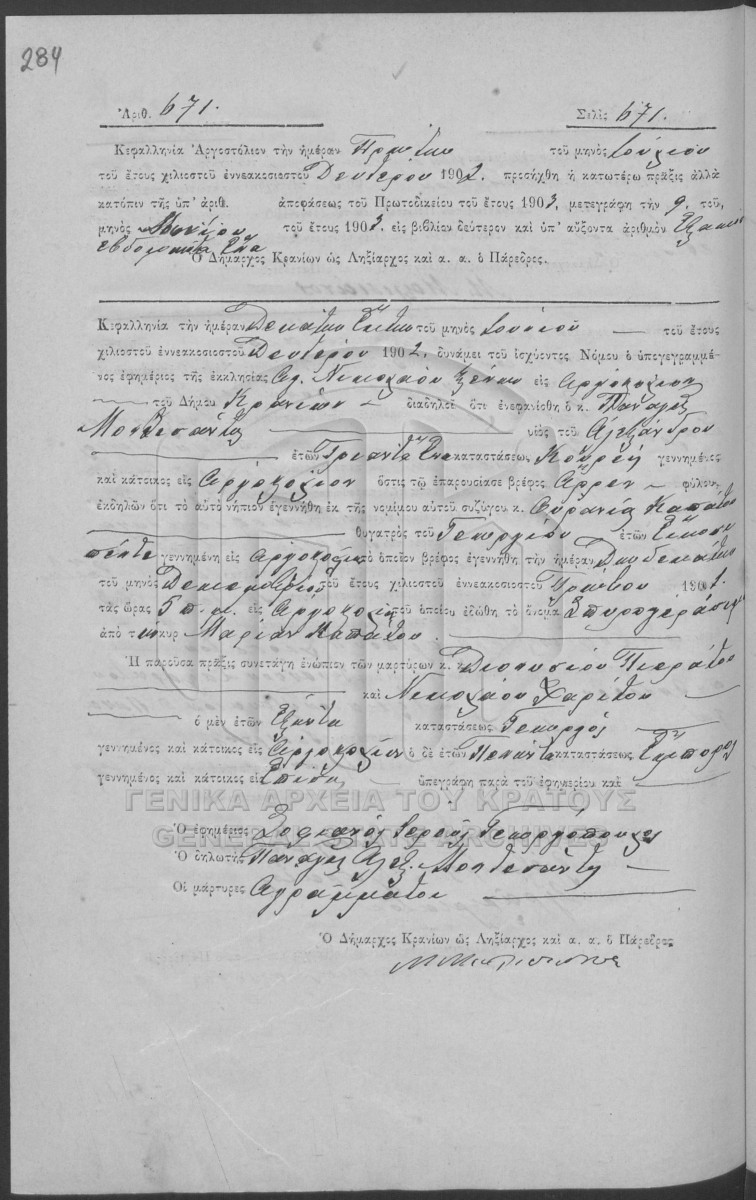 284
Ἀριθ. 671. Σελὶς 671.
Κεφαλληνία Ἀργοστόλιον τὴν ἡμέραν Πρώτην τοῦ μηνὸς Ἰουλίου
τοῦ ἔτους χιλιοστοῦ ἐννεακοσιοστοῦ Δευτέρου 1902. προσήχθη ἡ κατωτέρω πρᾶξις ἀλλὰ
κατόπιν τῆς ὑπ' ἀριθ. ἀποφάσεως τοῦ Πρωτοδικείου τοῦ ἔτους 1903. μετεγράφη τὴν 9. τοῦ
μηνὸς τοῦ ἔτους 1903. εἰς βιβλίον δεύτερον καὶ ὑπ' αὔξοντα ἀριθμὸν Ἑξακόσια
ἑβδομήκοντα ἕνα
Ὁ Δήμαρχος Κρανίων ὡς Ληξίαρχος καὶ α. α. ὁ Πάρεδρος.
Κεφαλληνία τὴν ἡμέραν Δεκάτην Ἕκτην τοῦ μηνὸς Ἰουνίου τοῦ ἔτους
χιλιοστοῦ ἐννεακοσιοστοῦ Δευτέρου 1902. δυνάμει τοῦ ἰσχύοντος Νόμου ὁ ὑπογεγραμμέ-
νος ἐφημέριος τῆς ἐκκλησίας Ἁγ. Νικολάου εἰς Ἀργοστόλιον
τοῦ Δήμου Κρανίων διαδηλοῖ ὅτι ἐνεφανίσθη ὁ κ. Παναγῆς
Μοντεσάντος υἱὸς τοῦ Ἀλεξάνδρου
ἐτῶν Τριάντα Ἕνα καταστάσεως Κουρεὺς γεννημένος
καὶ κάτοικος εἰς Ἀργοστόλιον ὅστις τῷ ἐπαρουσίασε βρέφος Ἄρρεν φύλου,
ἐκδηλῶν ὅτι τὸ αὐτὸ νήπιον ἐγεννήθη ἐκ τῆς νομίμου αὐτοῦ συζύγου κ. Οὐρανία Καπάτου
θυγατρὸς τοῦ Γεωργίου ἐτῶν Εἴκοσι
πέντε γεννημένη εἰς Ἀργοστόλιον τὸ ὁποῖον βρέφος ἐγεννήθη τὴν ἡμέραν Δωδεκάτην
τοῦ μηνὸς Δεκεμβρίου τοῦ ἔτους χιλιοστοῦ ἐννεακοσιοστοῦ Πρώτου 1901.
τὰς ὥρας 5 π. μ. εἰς Ἀργοστόλιον τοῦ ὁποίου ἐδόθη τὸ ὄνομα Σπυρογεράσιμος
ἀπὸ τὴν κυρ Μαρίαν Καπάτου.
Ἡ παροῦσα πρᾶξις συνετάγη ἐνώπιον τῶν μαρτύρων κ. κ. Διονυσίου Πιεράτου
καὶ Νικολάου Χαρίτου
ὁ μὲν ἐτῶν Ἑξήντα καταστάσεως Γεωργὸς
γεννημένος καὶ κάτοικος εἰς Ἀργοστόλιον ὁ δὲ ἐτῶν Πενήντα καταστάσεως Ἔμπορος
γεννημένος καὶ κάτοικος εἰς ὑπεγράφη παρὰ τοῦ ἐφημερίου καὶ
ΓΕΝΙΚΑ ΑΡΧΕΙΑ ΤΟΥ ΚΡΑΤΟΥΣ
GENERAL STATE ARCHIVES
Ὁ ἐφημέριος Σοφιανὸς Ἱερεὺς Γεωργόπουλος
Ὁ δηλωτὴς Παναγῆς Ἀλεξ. Μοντεσάντος
Οἱ μάρτυρες Ἀγράμματοι
Ὁ Δήμαρχος Κρανίων ὡς Ληξίαρχος καὶ α. α. ὁ Πάρεδρος